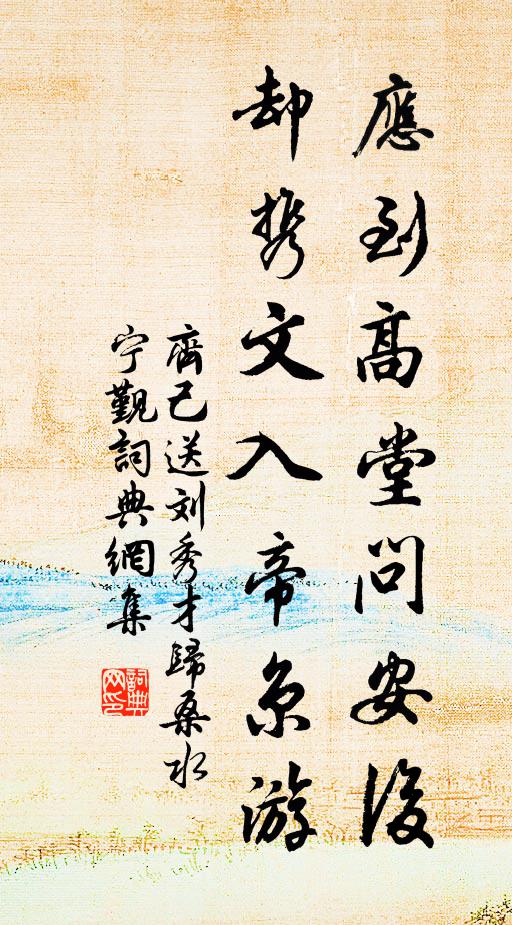 應到高堂問安後
却携文入帝京游
齊己送刘秀才歸桑水
宁覲詞典網集
詞典
网印